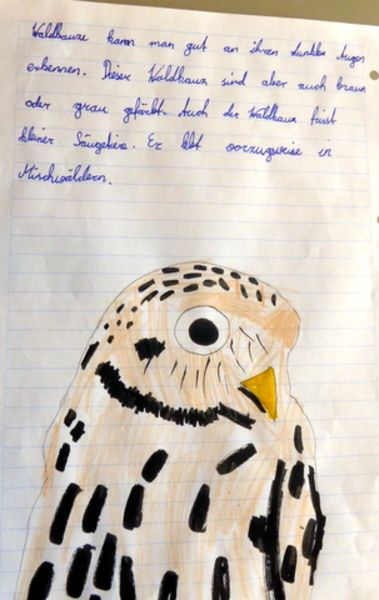 Waldkauze kann man gut an ihren dunklen Augen
erkennen. Dieser Waldkauz sind aber auch braun
oder grau gefärbt. Auch der Waldkauz frisst
kleiner Säugetiere. Er lebt vorzugsweise in
Mischwäldern.